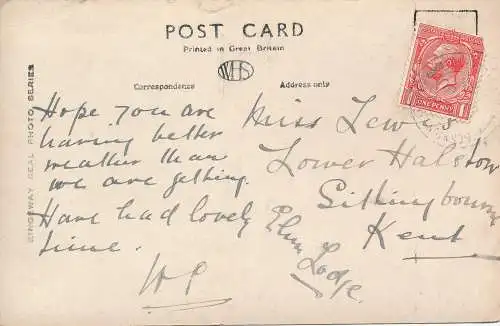 POST CARD
Printed in Great Britain
WHS
Correspondence
Address only
KINGSWAY REAL PHOTO SERIES
Hope you are
having better
weather than
we are getting.
Have had lovely
time.
Miss Lew
Lower Halstow
Sittingbourne
Kent
Plum
Lodge.
ONE PENNY